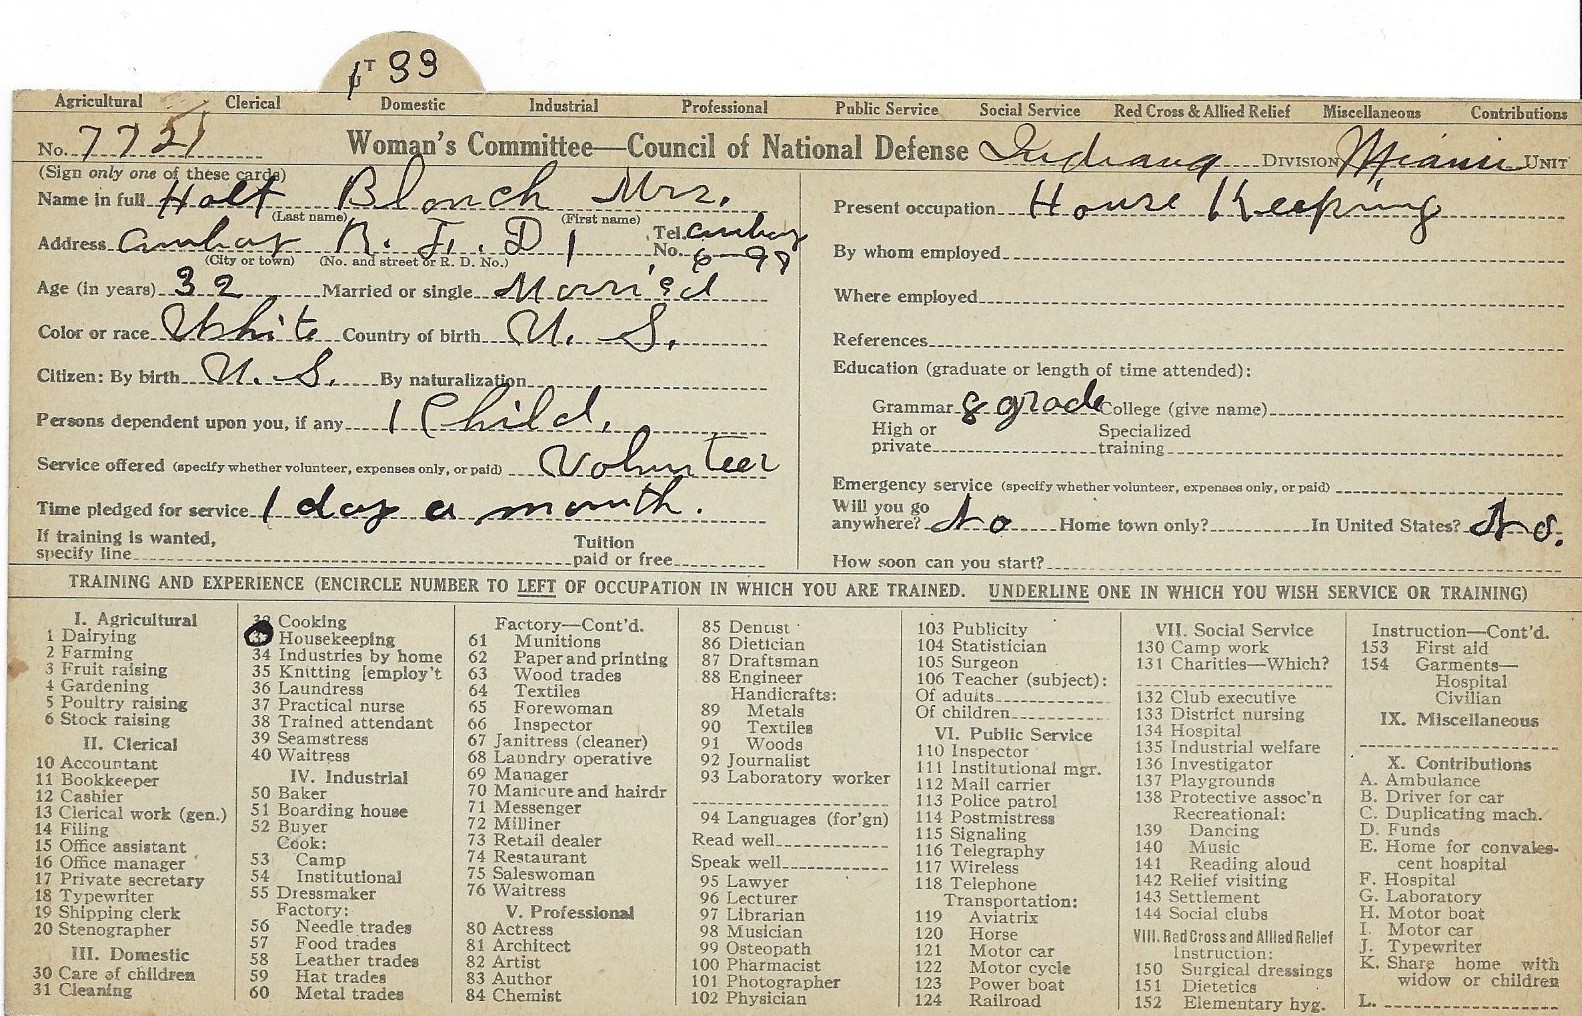 T 33
Agricultural Clerical Domestic Industrial Professional Public Service Social Service Red Cross & Allied Relief Miscellaneous Contributions
No. 7721 Woman's Committee—Council of National Defense Indiana DIVISION Miami UNIT
(Sign only one of these cards)
Name in full Holt Blanch Mrs.
(Last name) (First name)
Address Amboy R. F. D 1 Tel. No. Amboy 6-98
(City or town) (No. and street or R. D. No.)
Age (in years) 32 Married or single Married
Color or race White Country of birth U. S.
Citizen: By birth U. S. By naturalization
Persons dependent upon you, if any 1 Child.
Service offered (specify whether volunteer, expenses only, or paid) Volunteer
Time pledged for service 1 day a month.
If training is wanted, specify line Tuition paid or free
Present occupation House Keeping
By whom employed
Where employed
References
Education (graduate or length of time attended):
Grammar 8 grade College (give name)
High or private Specialized training
Emergency service (specify whether volunteer, expenses only, or paid)
Will you go anywhere? No Home town only? In United States? No.
How soon can you start?
TRAINING AND EXPERIENCE (ENCIRCLE NUMBER TO LEFT OF OCCUPATION IN WHICH YOU ARE TRAINED. UNDERLINE ONE IN WHICH YOU WISH SERVICE OR TRAINING)
I. Agricultural
1 Dairying
2 Farming
3 Fruit raising
4 Gardening
5 Poultry raising
6 Stock raising
II. Clerical
10 Accountant
11 Bookkeeper
12 Cashier
13 Clerical work (gen.)
14 Filing
15 Office assistant
16 Office manager
17 Private secretary
18 Typewriter
19 Shipping clerk
20 Stenographer
III. Domestic
30 Care of children
31 Cleaning
32 Cooking
Housekeeping
34 Industries by home
35 Knitting [employ't
36 Laundress
37 Practical nurse
38 Trained attendant
39 Seamstress
40 Waitress
IV. Industrial
50 Baker
51 Boarding house
52 Buyer
Cook:
53 Camp
54 Institutional
55 Dressmaker
Factory:
56 Needle trades
57 Food trades
58 Leather trades
59 Hat trades
60 Metal trades
Factory—Cont'd.
61 Munitions
62 Paper and printing
63 Wood trades
64 Textiles
65 Forewoman
66 Inspector
67 Janitress (cleaner)
68 Laundry operative
69 Manager
70 Manicure and hairdr
71 Messenger
72 Milliner
73 Retail dealer
74 Restaurant
75 Saleswoman
76 Waitress
V. Professional
80 Actress
81 Architect
82 Artist
83 Author
84 Chemist
85 Dentist
86 Dietician
87 Draftsman
88 Engineer
Handicrafts:
89 Metals
90 Textiles
91 Woods
92 Journalist
93 Laboratory worker
94 Languages (for'gn)
Read well
Speak well
95 Lawyer
96 Lecturer
97 Librarian
98 Musician
99 Osteopath
100 Pharmacist
101 Photographer
102 Physician
103 Publicity
104 Statistician
105 Surgeon
106 Teacher (subject):
Of adults
Of children
VI. Public Service
110 Inspector
111 Institutional mgr.
112 Mail carrier
113 Police patrol
114 Postmistress
115 Signaling
116 Telegraphy
117 Wireless
118 Telephone
Transportation:
119 Aviatrix
120 Horse
121 Motor car
122 Motor cycle
123 Power boat
124 Railroad
VII. Social Service
130 Camp work
131 Charities—Which?
132 Club executive
133 District nursing
134 Hospital
135 Industrial welfare
136 Investigator
137 Playgrounds
138 Protective assoc'n
Recreational:
139 Dancing
140 Music
141 Reading aloud
142 Relief visiting
143 Settlement
144 Social clubs
VIII. Red Cross and Allied Relief
Instruction:
150 Surgical dressings
151 Dietetics
152 Elementary hyg.
Instruction—Cont'd.
153 First aid
154 Garments—
Hospital
Civilian
IX. Miscellaneous
X. Contributions
A. Ambulance
B. Driver for car
C. Duplicating mach.
D. Funds
E. Home for convales-
cent hospital
F. Hospital
G. Laboratory
H. Motor boat
I. Motor car
J. Typewriter
K. Share home with
widow or children
L.